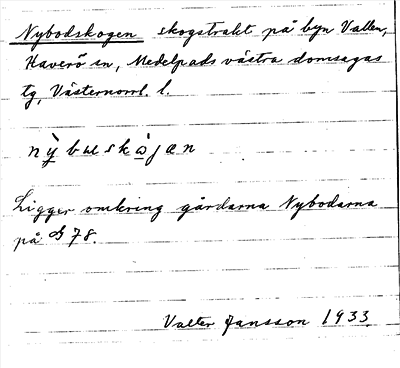 Nybodskogen skogstrakt på byn Vallen,
Haverö sn, Medelpads västra domsagas
tg, Västernorrl. l.
nỳbuskòjen
Ligger omkring gårdarna Nybodarna
på G 78.
Valter Jansson 1933